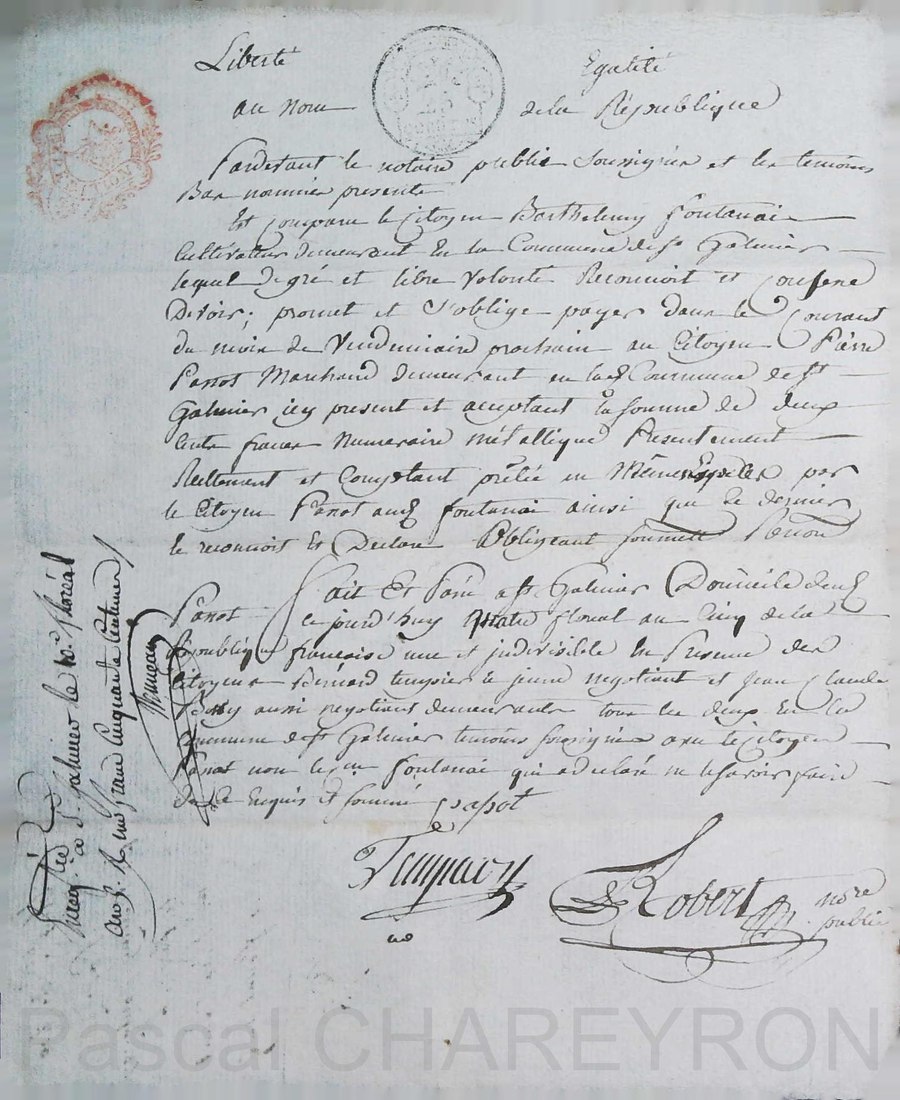 Liberté Egalité
au nom de la République
Pardevant le notaire public soussigné et les temoins
Bas nommés presents
Est comparu le Citoyen Barthelemy fontanai
Cultivateur demeurant En la Commune de St Galmier
lequel de gré et libre volonté Reconnoit et confesse
Devoir, promet et s'oblige payer dans le Courant
du mois de Vendemiaire prochain au Citoyen Pierre
Passot Marchand demeurant en lad Commune de St
Galmier icy present et acceptant la somme de deux
Cents francs Numeraire métallique Presentement
Reellement et Comptant prêtée en mêmes Especes par
le Citoyen Passot aud fontanai ainsi que ce dernier
le reconnoit Et Declare Obligeant soumett Renon
Fait Et Passé a St Galmier Domicile dud
Passot Ce jourd'huy quatre floreal an Cinq de la
Republique francoise une et indivisible En Presence des
Citoyens Bernard le jeune negotiant et Jean Claude
aussi negotiant demeurants tous les deux En la
Commune de St Galmier temoins soussignés avec le Citoyen
Passot non led fontanai qui a declaré ne le savoir faire
de ce Enquis et sommé Passot
Robert nore
public
a St galmier le floréal
an 5. R un franc cinquante Centimes
Pascal CHAREYRON